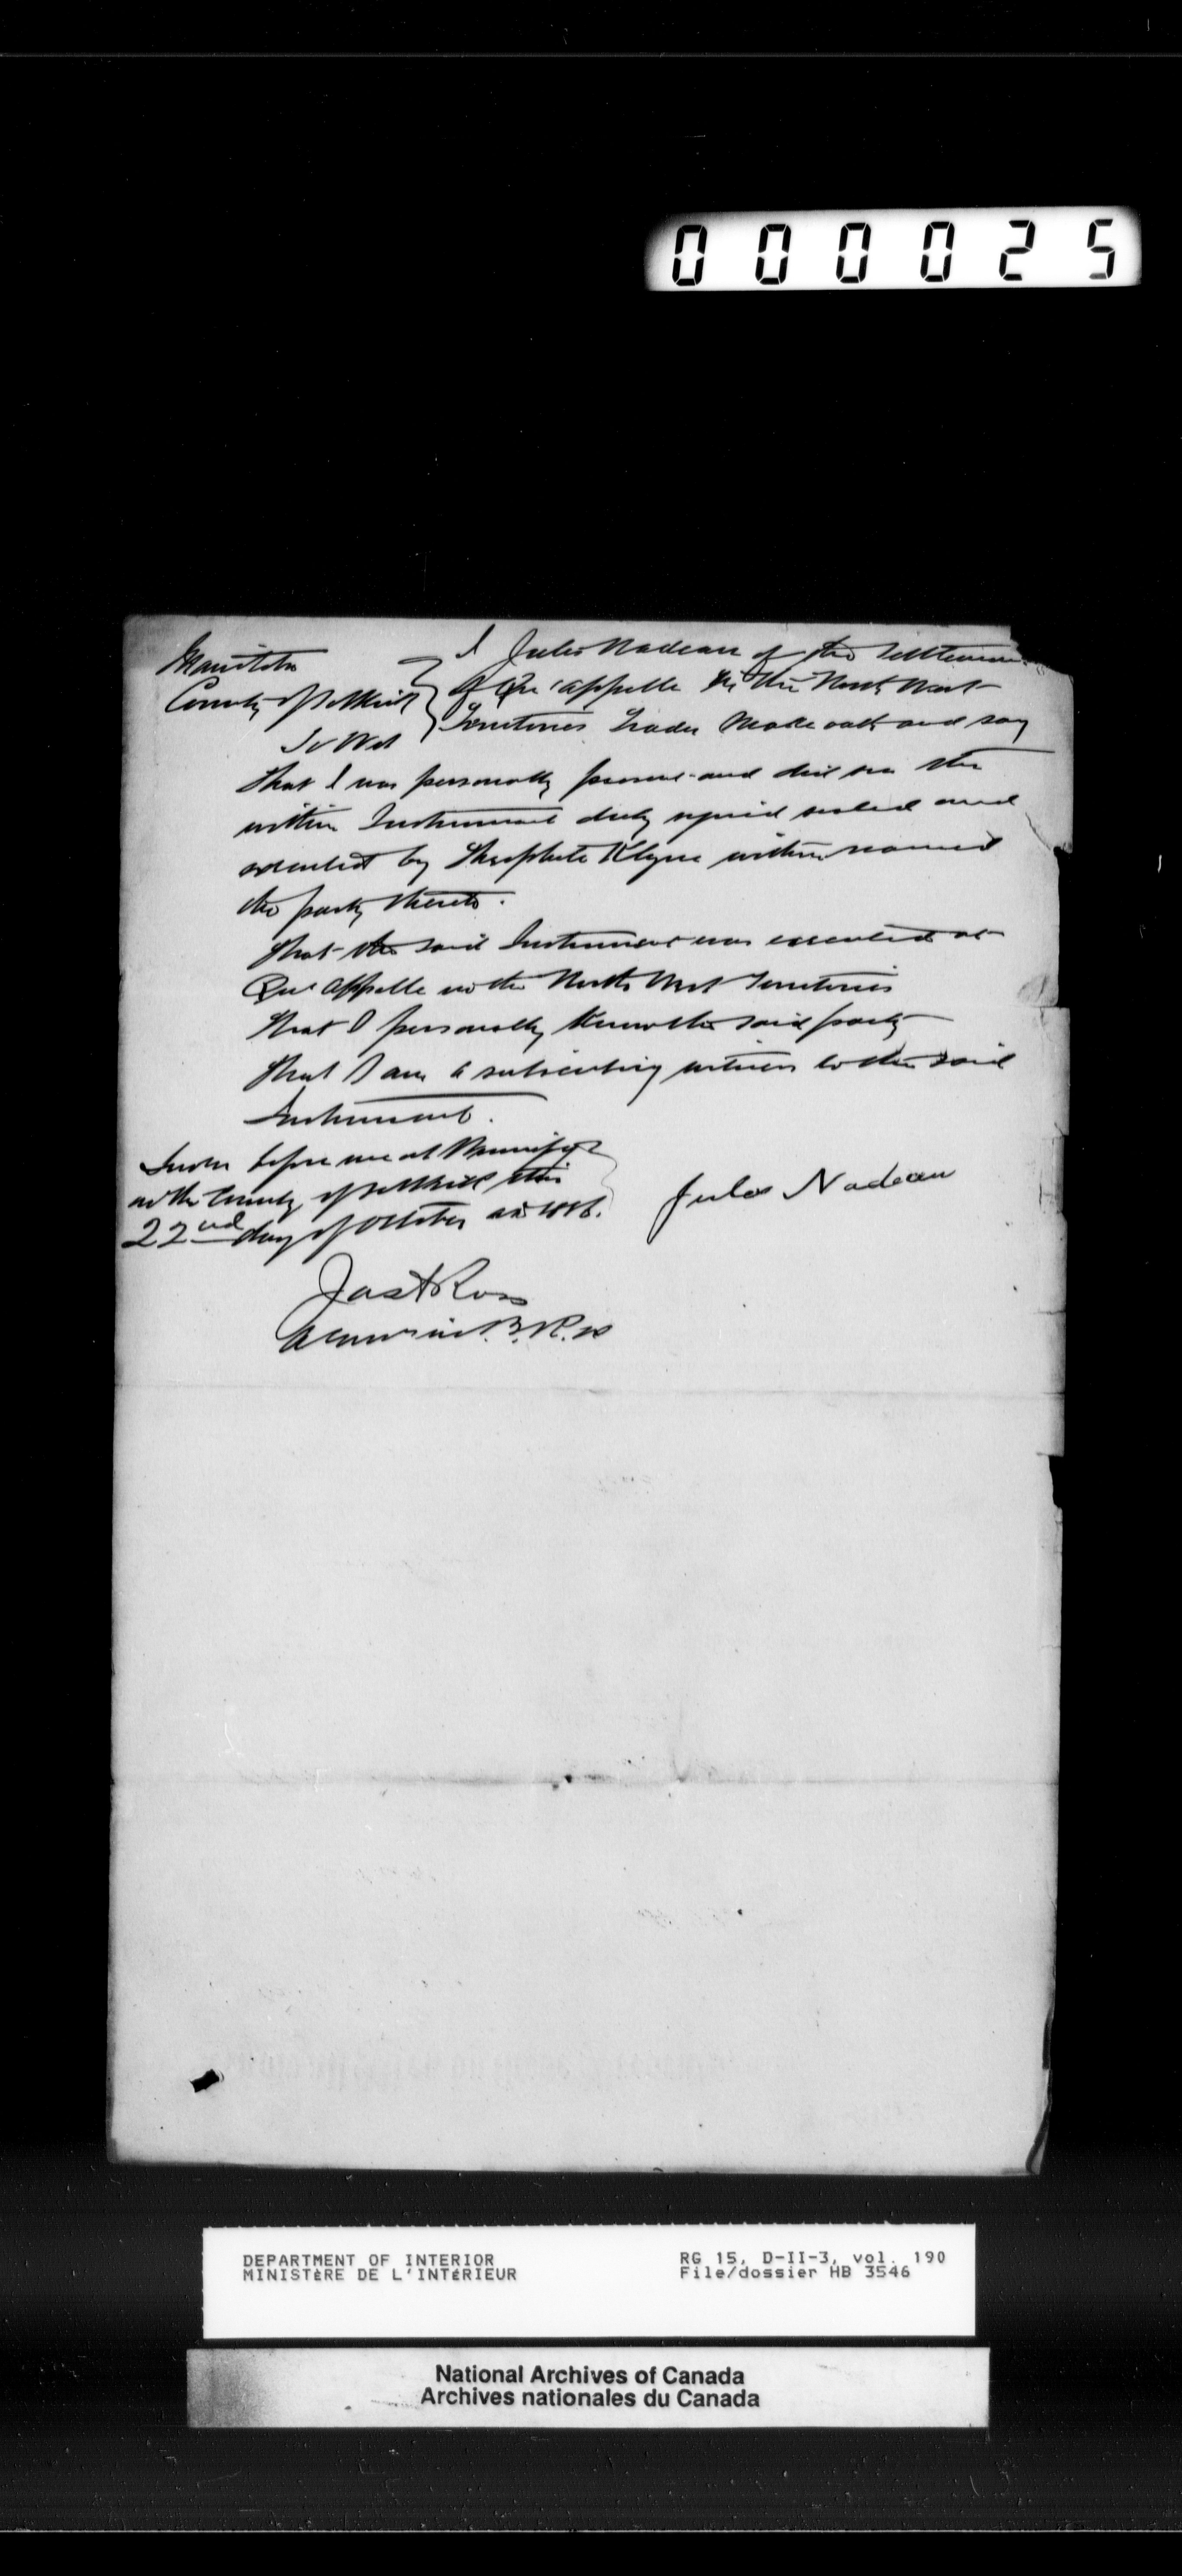 000025
Manitoba
County of Selkirk
To Wit
I Jules Nadeau of the Settlement
of Qu'appelle in the North West
Territories Trader Make oath and say
that I was personally present and did see the
within Instrument duly signed sealed and
executed by Theophile Klyne within named
the party thereto.
That the said Instrument was executed at
Qu'Appelle in the North West Territories
That I personally know the said party
That I am a subscribing witness to the said
Instrument.
Sworn before me at Winnipeg
in the County of Selkirk this
22nd day of October
Jules Nadeau
Jas A Ross
A Comr in B.R. &c
DEPARTMENT OF INTERIOR
MINISTÈRE DE L'INTÉRIEUR
RG 15, D-II-3, vol. 190
File/dossier HB 3546
National Archives of Canada
Archives nationales du Canada